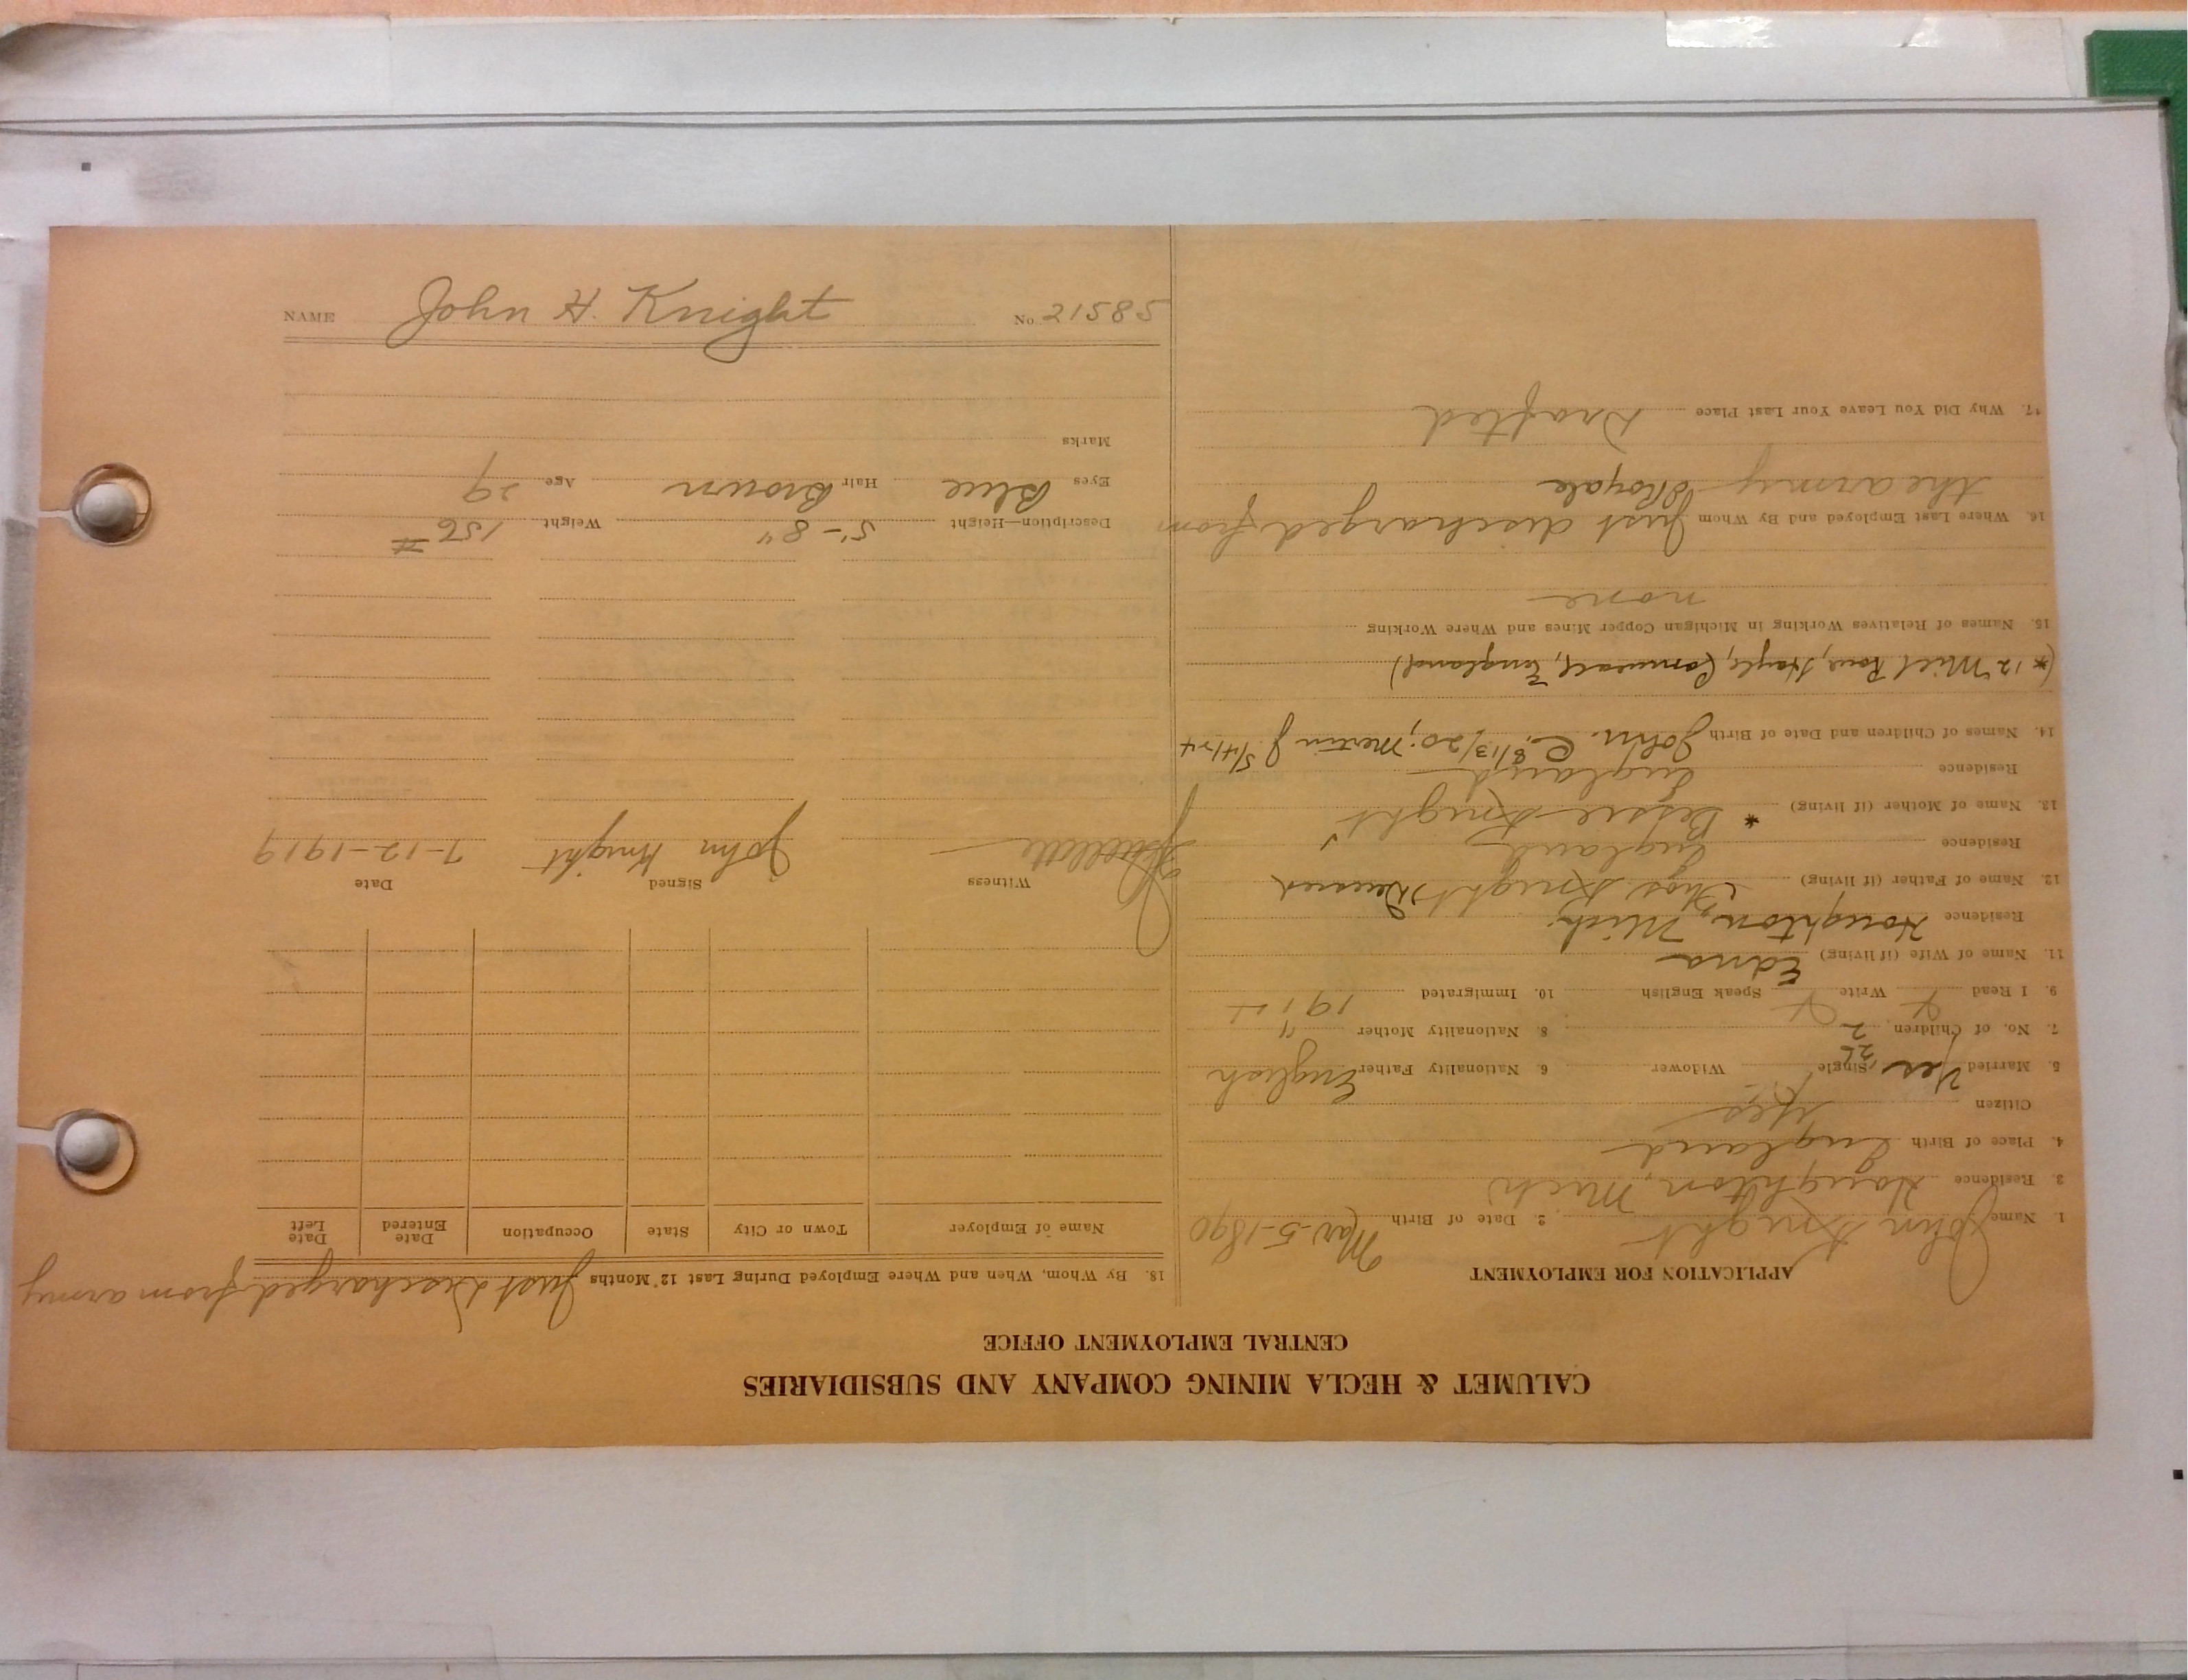 CALUMET & HECLA MINING COMPANY AND SUBSIDIARIES
CENTRAL EMPLOYMENT OFFICE
APPLICATION FOR EMPLOYMENT
1. Name John Knight 2. Date of Birth Mar-5-1890
3. Residence Houghton, Mich
4. Place of Birth England
Citizen Yes
5. Married Yes Single Widower 6. Nationality Father English
7. No. of Children 2 8. Nationality Mother "
9. I Read Write Speak English 10. Immigrated
11. Name of Wife (if living) Edna
Residence Houghton, Mich.
12. Name of Father (if living) Thos Knight Deceased
Residence England
13. Name of Mother (if living) * Bessie Knight
Residence England
14. Names of Children and Date of Birth John. C. 8/13/20; Mervin J. 5/4/24
(*12 Mill Row, Hayle, Cornwall, England)
15. Names of Relatives Working in Michigan Copper Mines and Where Working
none
16. Where Last Employed and By Whom Just discharged from
the army Royale
17. Why Did You Leave Your Last Place Drafted
18. By Whom, When and Where Employed During Last 12 Months Just Discharged from army
Name of Employer Town or City State Occupation Date Entered Date Left
Witness Signed Date
John Knight 7-12-1919
Description—Height 5'-8" Weight 156 #
Eyes Blue Hair Brown Age 29
Marks
NAME John H. Knight No 21585